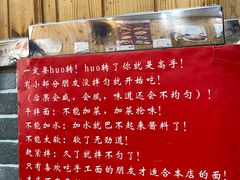 一定要huo转！huo转了你就是高手！
有小部分朋友没拌匀就开始吃！
（后果会咸，会腻，味道还会不均匀）！
干拌面：不能加面，加菜抢味！
不能加水：加水就巴不起来酱料了！
不能太软：软了无劲道！
赶紧拌：久了就拌不匀了！
只有喜欢吃手工面的朋友才适合本店的面！